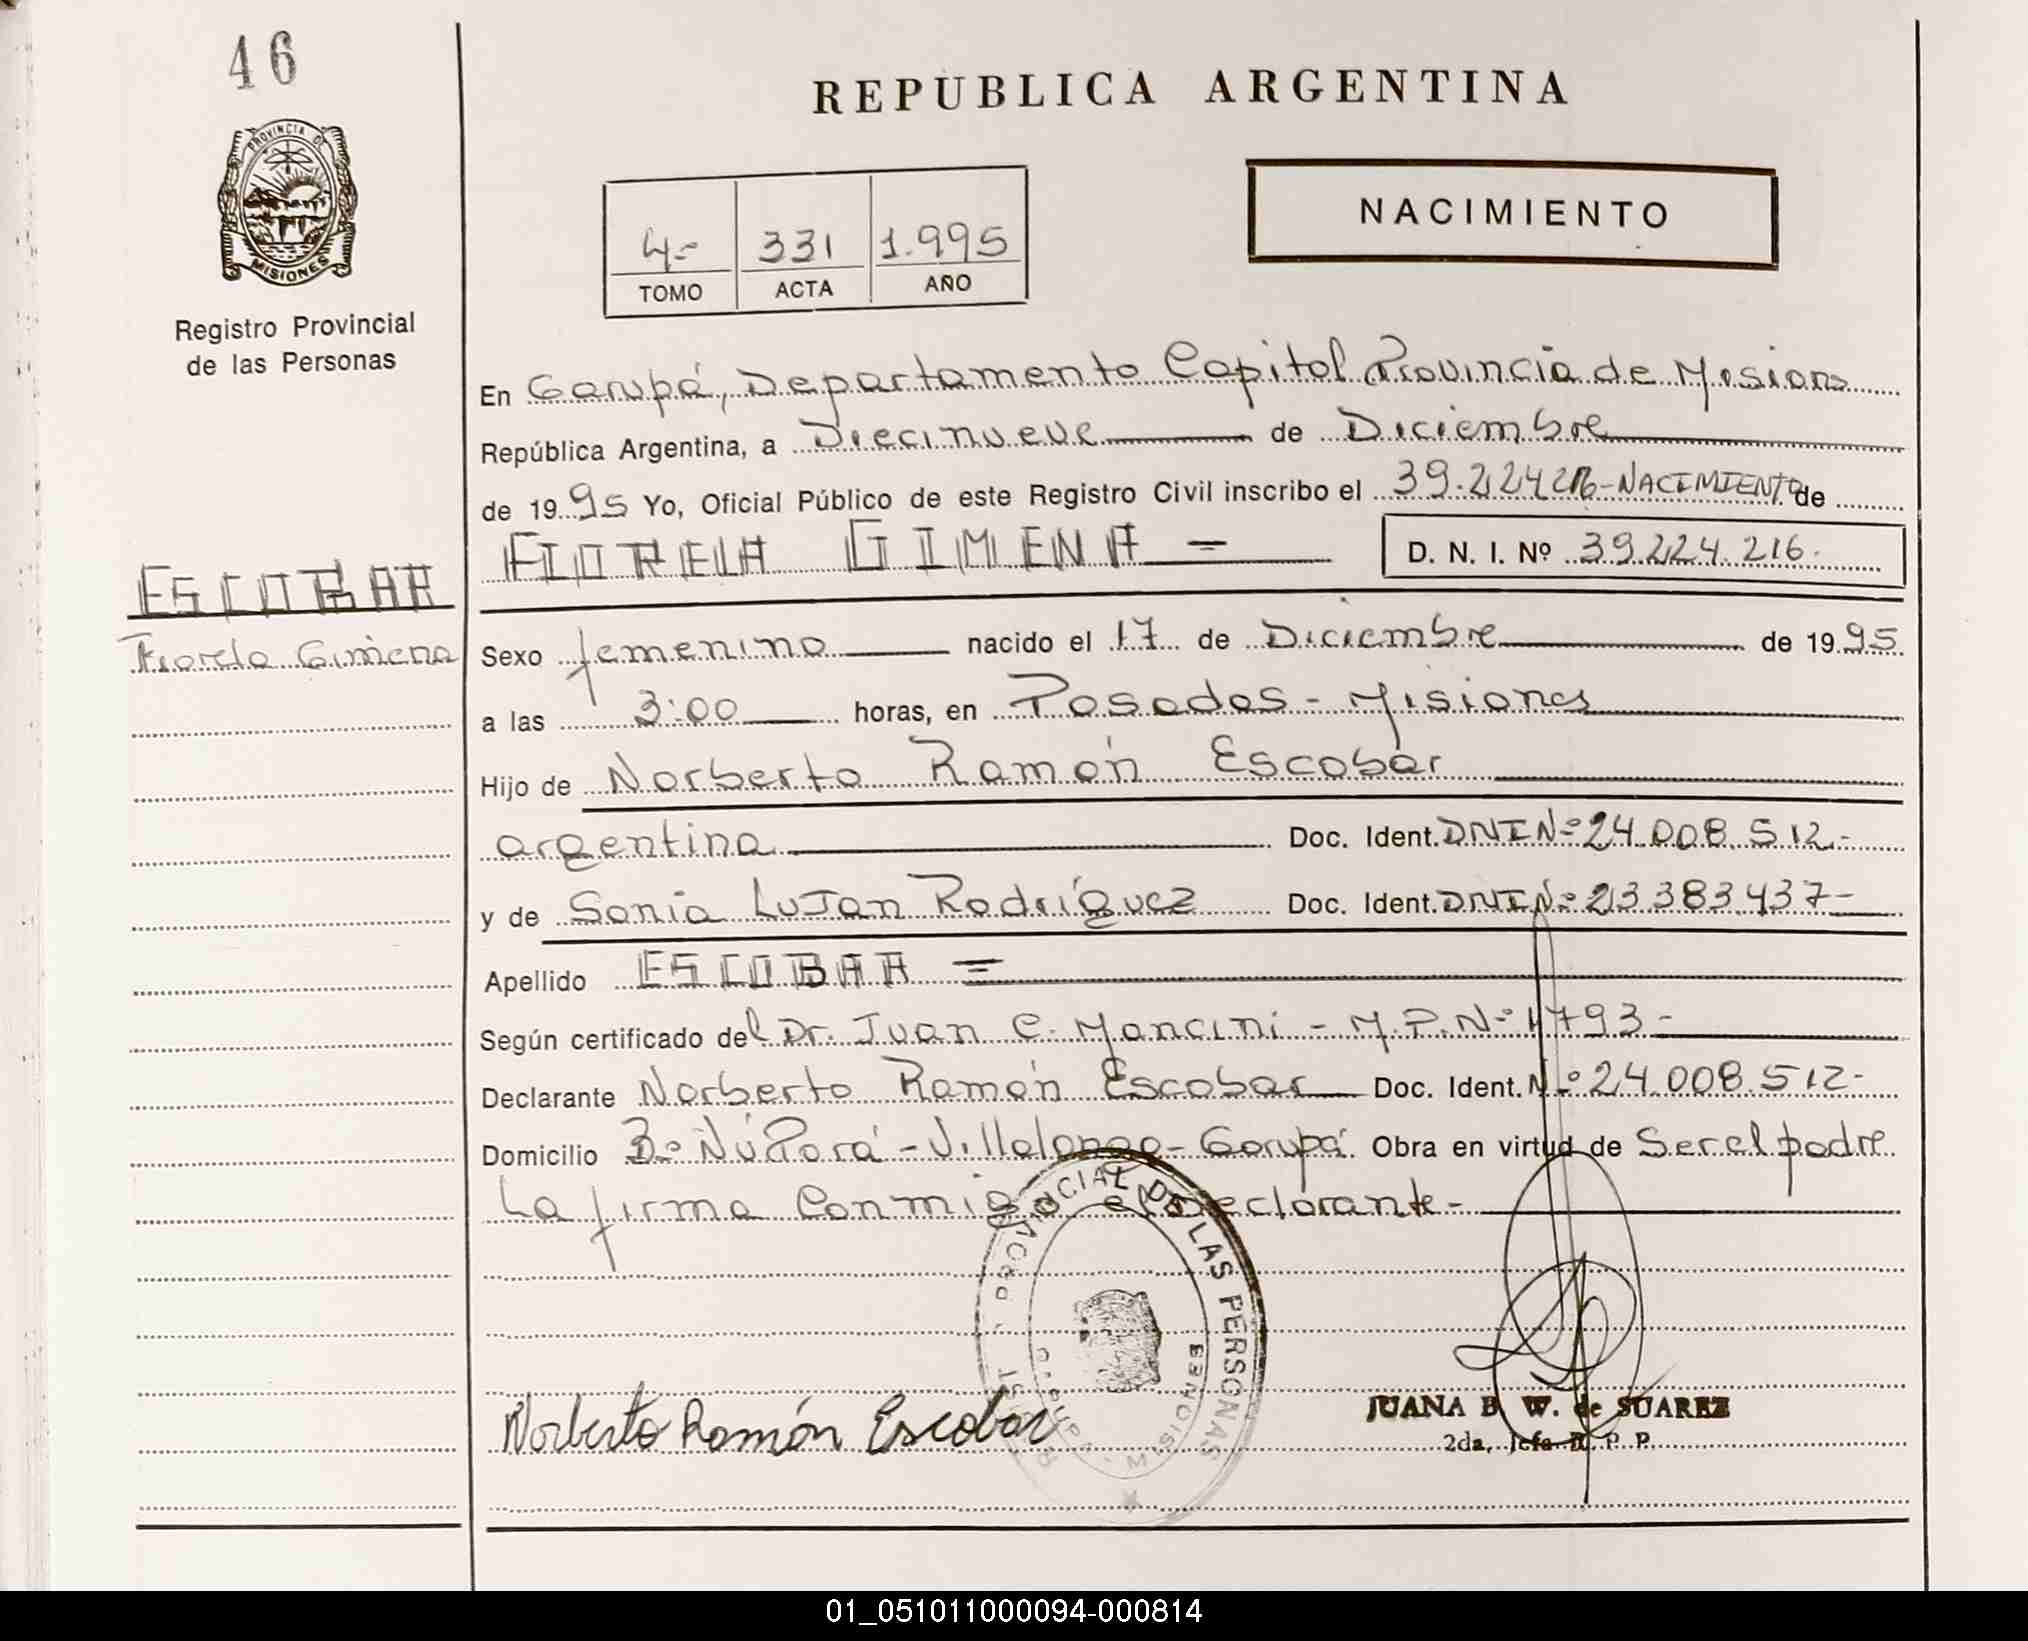 46
REPUBLICA ARGENTINA
PROVINCIA DE
MISIONES
Registro Provincial
de las Personas
4.- 331 1.995
TOMO ACTA AÑO
NACIMIENTO
En Garupá, Departamento Capital Provincia de Misiones
República Argentina, a Diecinueve de Diciembre
de 1995 Yo, Oficial Público de este Registro Civil inscribo el 39.224.216-NACIMIENTO de
FIORELA GIMENA = D. N. I. Nº 39.224.216.
ESCOBAR
Fiorela Gimena
Sexo femenino nacido el 17 de Diciembre de 1995
a las 3:00 horas, en Posadas - Misiones
Hijo de Norberto Ramón Escobar
argentina Doc. Ident. DNI Nº 24.008.512.-
y de Sonia Lujan Rodríguez Doc. Ident. DNI Nº 23.383.437-
Apellido ESCOBAR =
Según certificado del Dr. Juan C. Mancini - M.P. Nº 1793-
Declarante Norberto Ramón Escobar Doc. Ident. Nº 24.008.512-
Domicilio Bº Ñú Porá - Villalonga - Garupá. Obra en virtud de Ser el padre
La firma Conmigo el Declarante-
PROVINCIAL DE LAS PERSONAS
MISIONES
Norberto Ramón Escobar
JUANA B. W. de SUAREZ
2da. Jefa R. P. P.
01_051011000094-000814